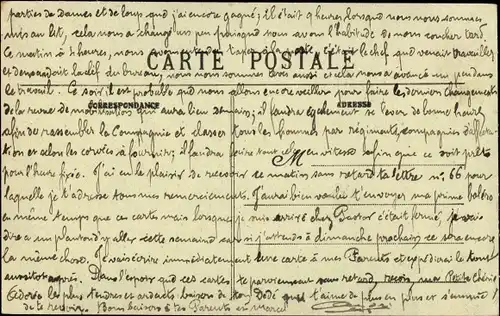 parties de Dames et de loup que j'ai encore gagné; il était 9 heures lorsque nous nous sommes
mis au lit, cela nous a changé un peu puisque nous avons l'habitude de nous coucher tard.
Ce matin à 4 heures, nous avons entendu taper à la porte, c'était le chef qui venait travailler
CARTE POSTALE
et demandait la clef du bureau; nous nous sommes levés aussi et cela nous a avancé un peu dans
le travail. Ce soir, il est probable que nous allons encore veiller pour faire les derniers changements
CORRESPONDANCE
ADRESSE
de la revue de mobilisation qui aura lieu demain; il faudra également se lever de bonne heure
afin de rassembler la Compagnie et classer tous les hommes par régiments, compagnies d'affecta
tion et selon les corvées à fournir; il faudra faire tout vitesse afin que ce soit prêt
M
pour l'heure fixée. J'ai eu le plaisir de recevoir ce matin sans retard ta lettre n° 66 pour
laquelle je t'adresse tous mes remerciements. J'aurai bien voulu t'envoyer ma prime
en même temps que ces cartes mais lorsque je suis arrivé chez Pastor c'était fermé, je vais
dire à un planton d'y aller cette semaine sans si j'attends à dimanche prochain ce sera encore
la même chose. Je vais écrire immédiatement une carte à mes Parents et expédirai le tout
aussitôt après. Dans l'espoir que ces cartes te parviennent sans retard, reçois ma Petite Chérie
Adorée les plus tendres et ardents baisers de ton Dédé qui t'aime de plus en plus et s'ennuie
de te revoir. Bons baisers à tes Parents en